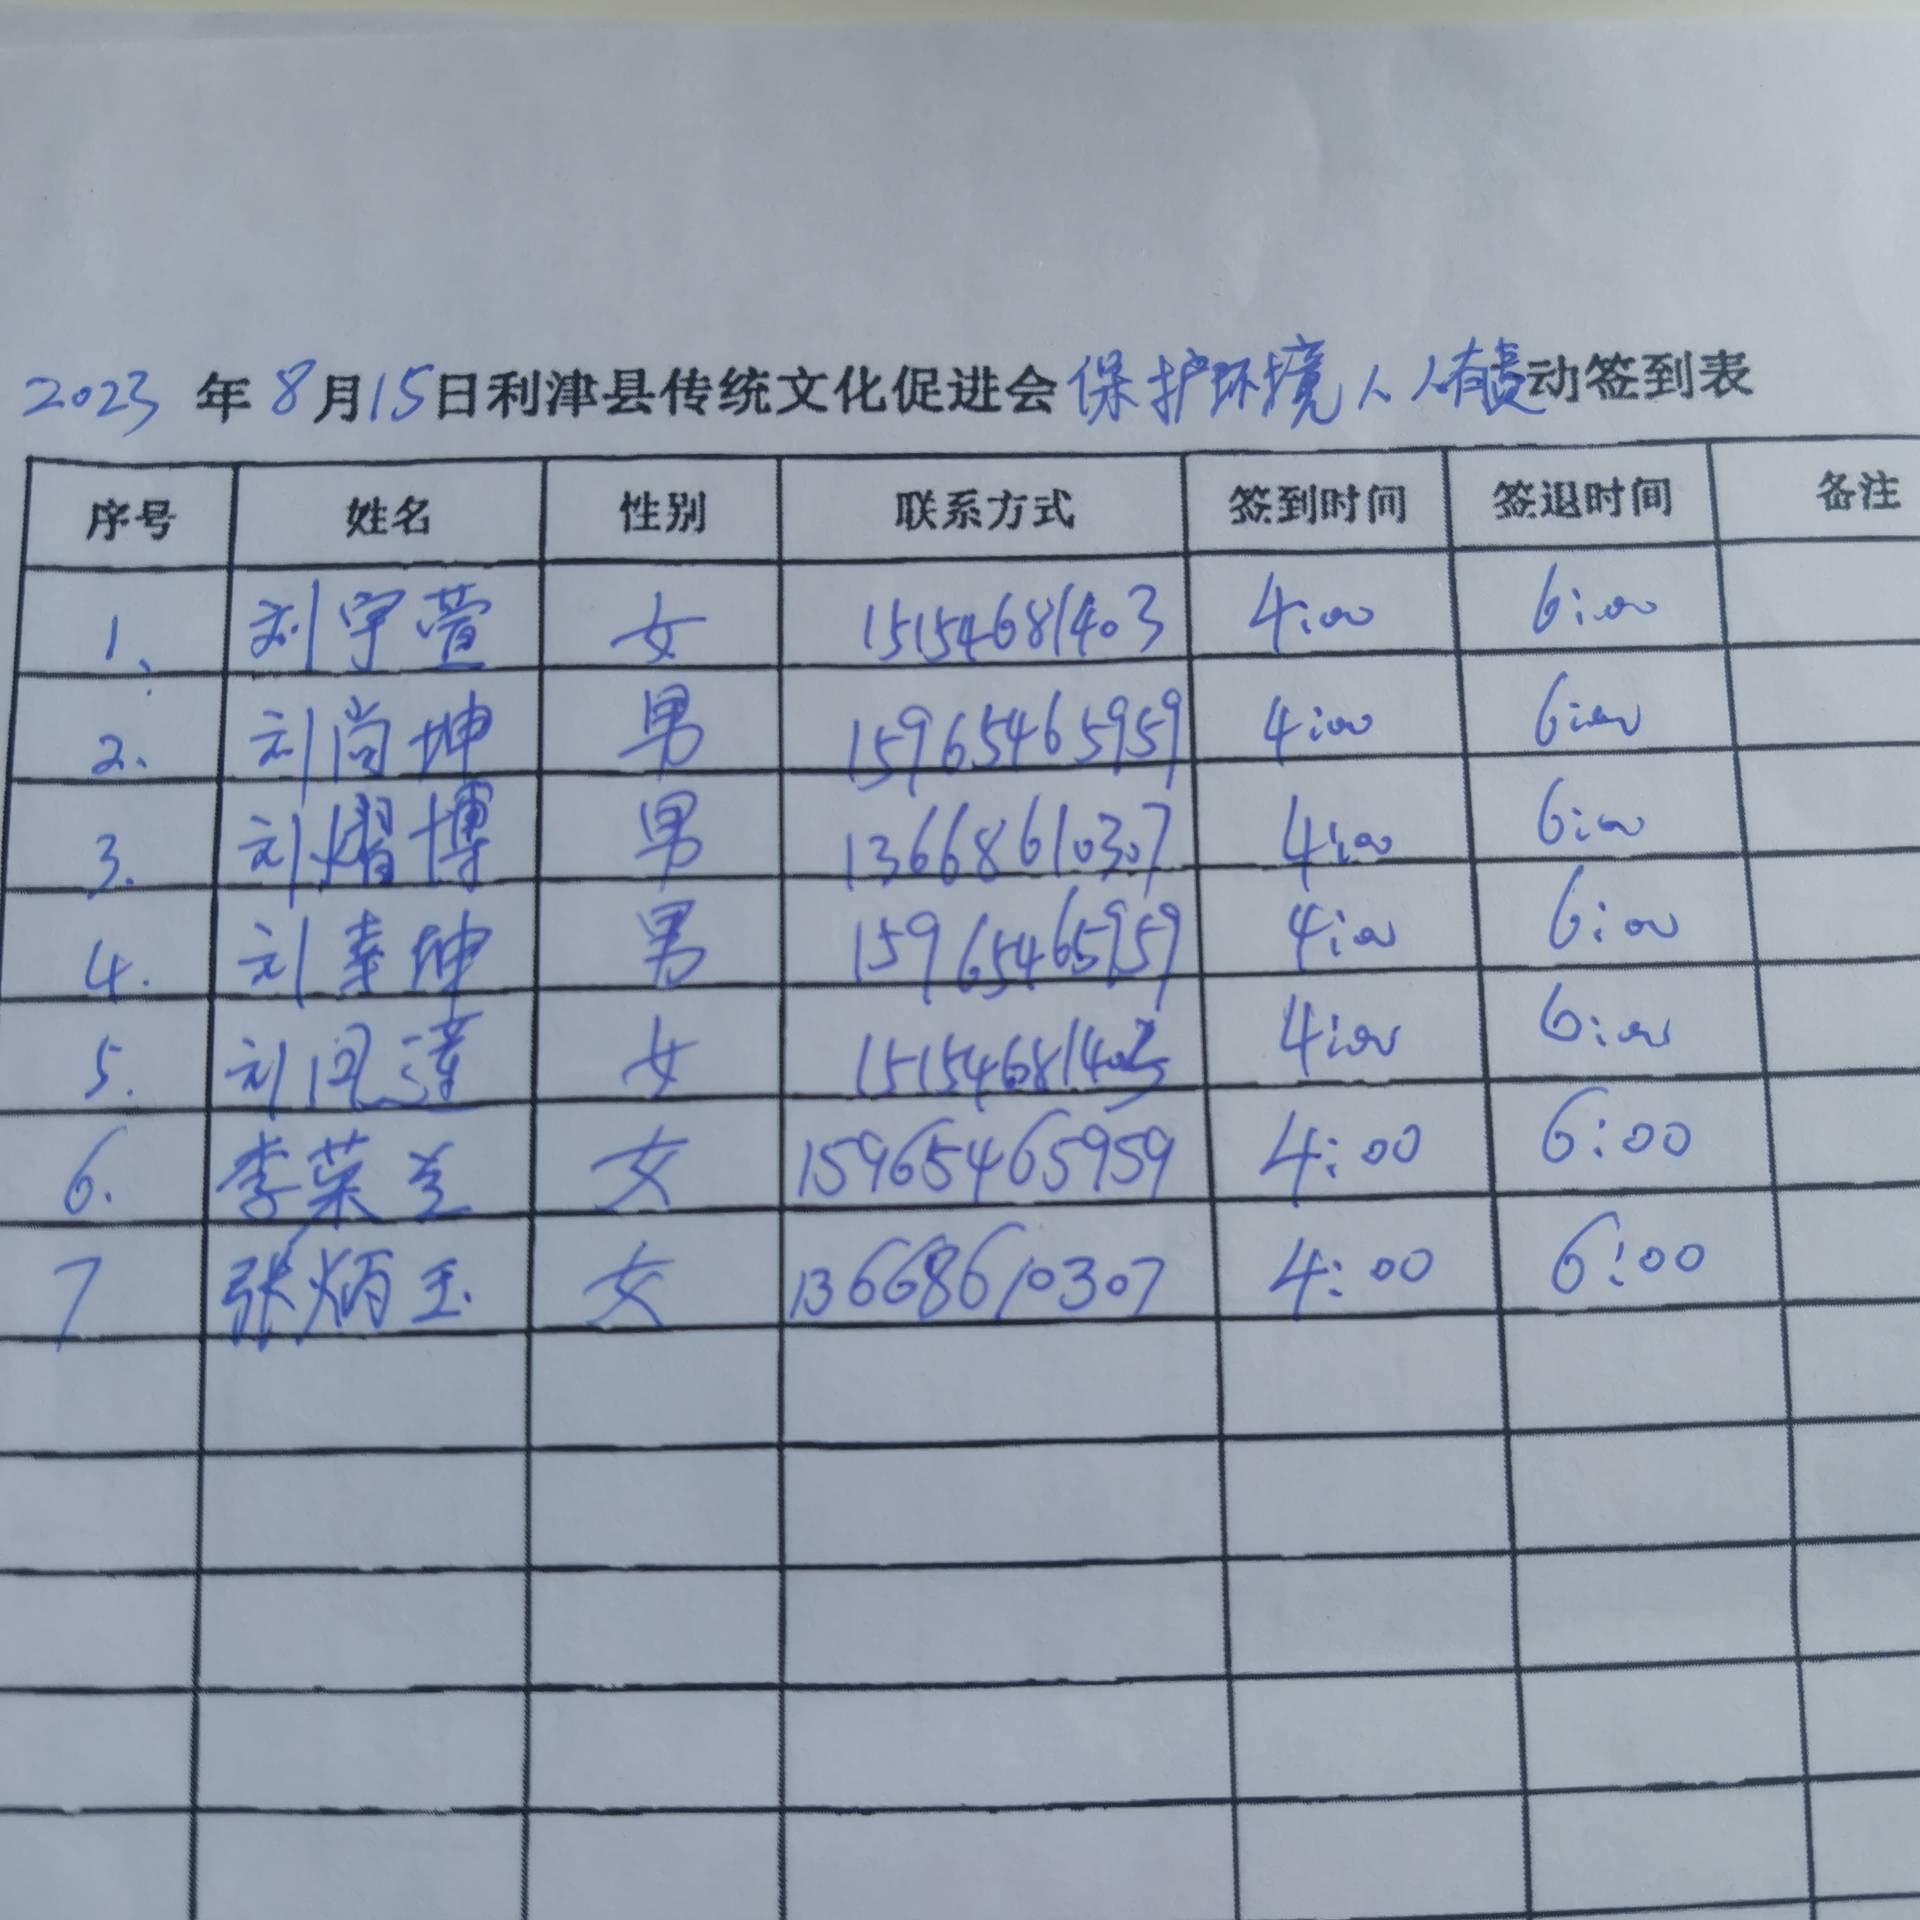 2023年8月15日利津县传统文化促进会保护环境人人有责动签到表
序号 姓名 性别 联系方式 签到时间 签退时间 备注
1、 刘宇萱 女 15154681403 4:00 6:00
2. 刘尚坤 男 15965465959 4:00 6:00
3. 刘熠博 男 13668610307 4:00 6:00
4. 刘 坤 男 15965465959 4:00 6:00
5. 刘 女 15154681403 4:00 6:00
6. 李荣兰 女 15965465959 4:00 6:00
7 张炳玉 女 13668610307 4:00 6:00